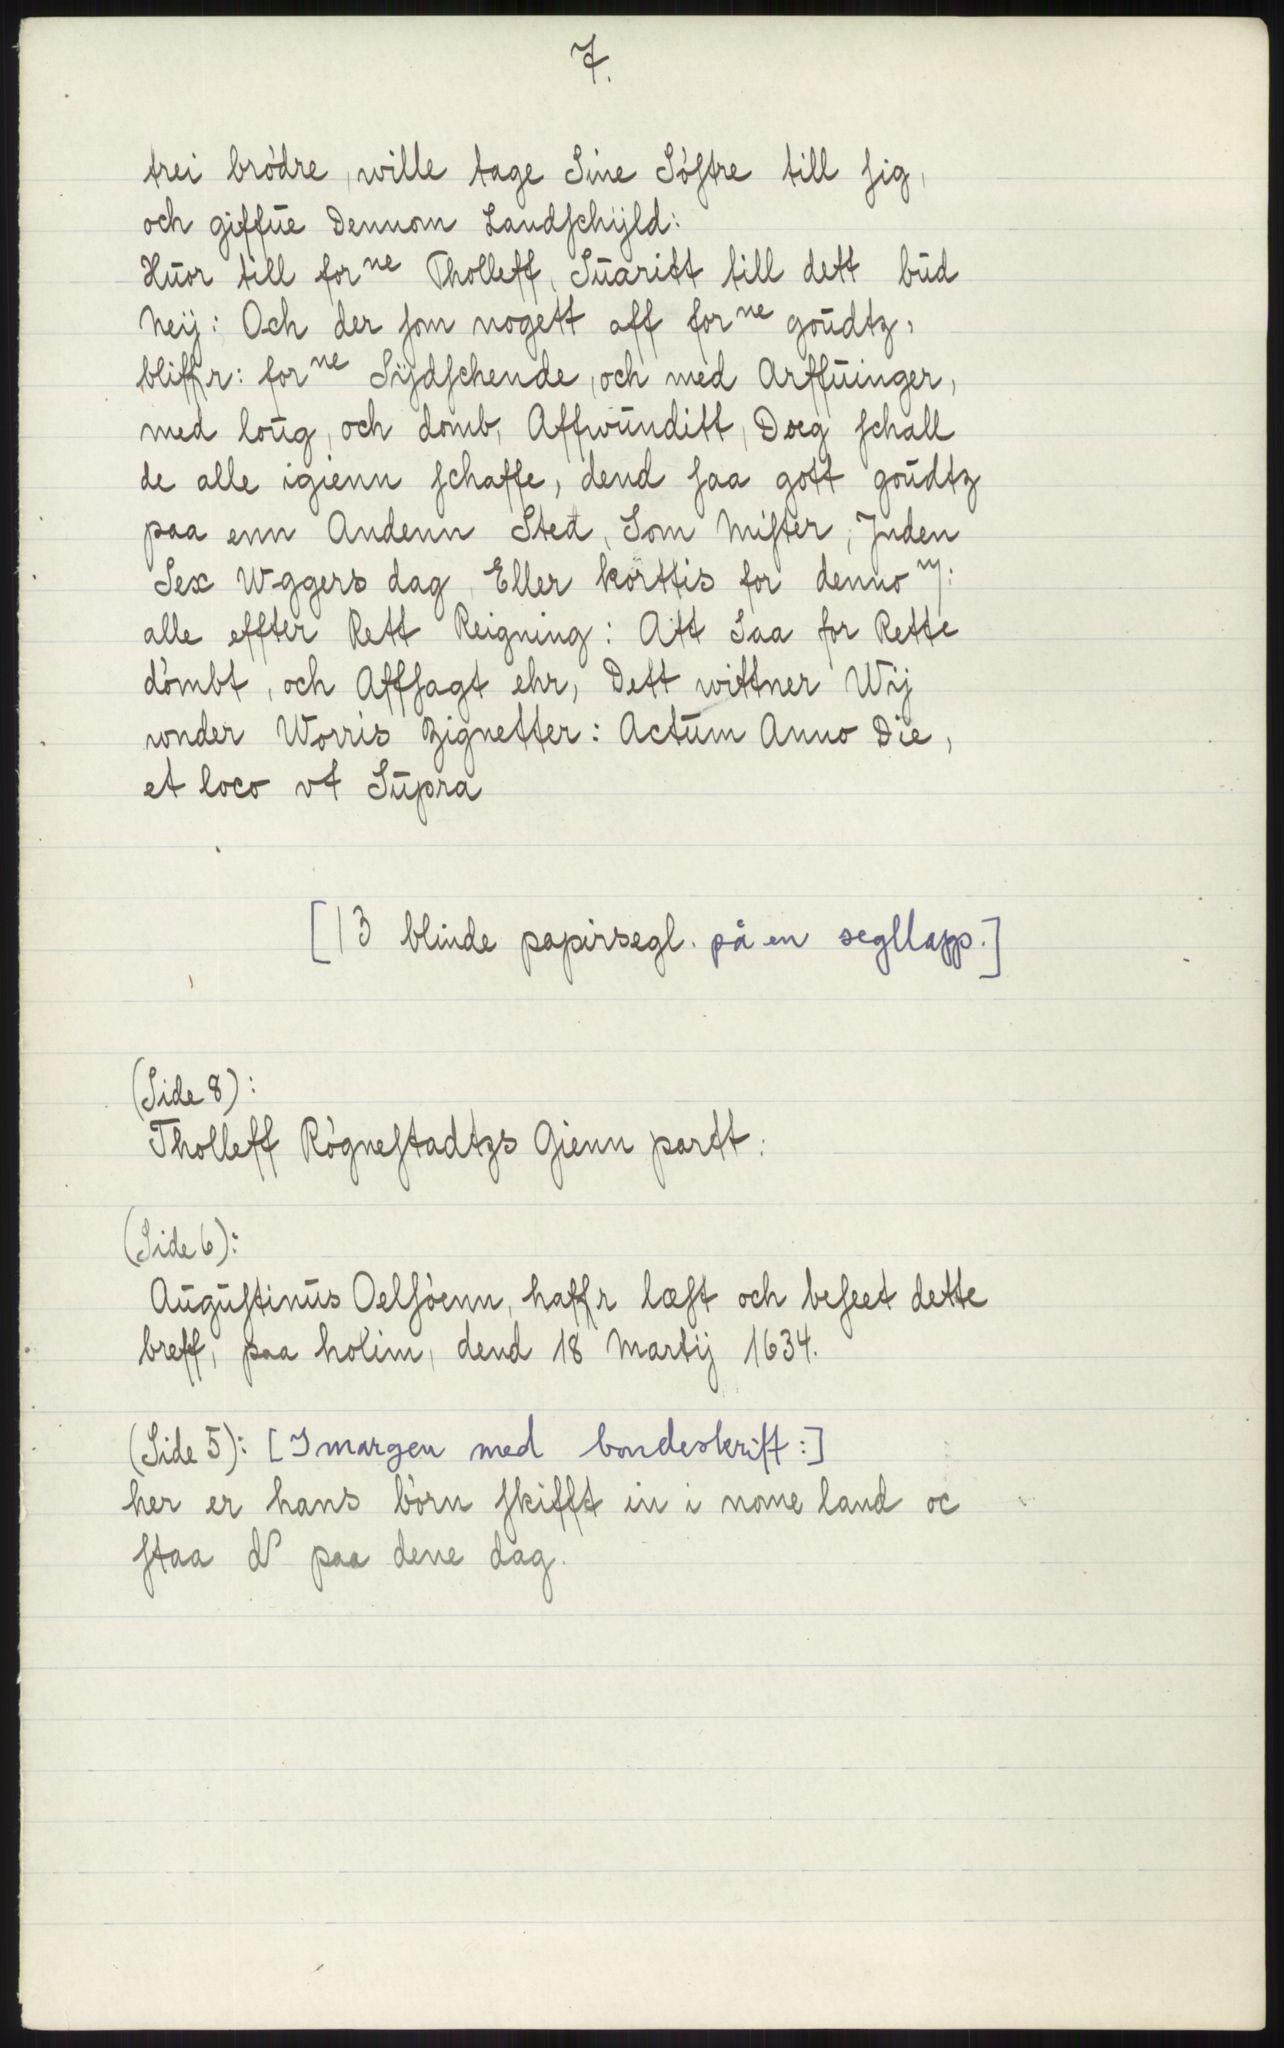 7.
trei brödre, wille tage Sine Söstre till sig,
och giffue Dennom Landschÿld:
Huor till for ne Tholleff, Suaritt till dett bud
Neÿ: Och der som nogett aff for ne goudtz,
bliffr: for ne Sÿdschende, och med Arffuinger,
med loug, och domb, Affwunditt, Doeg schall
de alle igienn schaffe, dend saa gott goudtz
paa enn Andenn Sted, Som Mister, Jnden
Sex Wggers dag, Eller korttis for denno m:
alle effter Rett Reigning: Att Saa for Rette
dömbt, och Affsagt ehr, Dett wittner Wij
wnder Worris Zignetter: Actum Anno Die,
et loco vt Supra
[13 blinde papirsegl. på en segllapp.]
(Side 8):
Tholleff Rögnestadtzs Gienn partt:
(Side 6):
Augustinus Oelsöenn, haffr læst och beseet dette
breff, paa holim, dend 18 Martij 1634.
(Side 5): [I margen med bondeskrift:]
her er hans börn skifft in i nome land oc
staa paa dene dag.